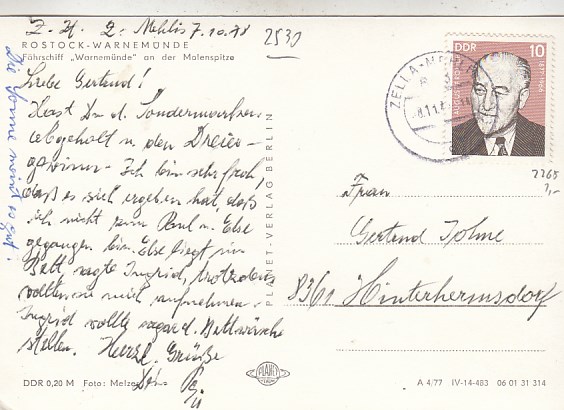 Z. H. Z. Mehlis 7.10.78
2530
ROSTOCK-WARNEMÜNDE
Fährschiff „Warnemünde" an der Molenspitze
Liebe Gertrud!
Hast Du d. Sondermarken
abgeholt u den
Ich bin sehr froh,
daß es sich ergeben hat, daß
ich nicht zum Paul u. Else
gegangen bin. Else liegt im
Bett, sagte Ingrid, trotzdem
wollten sie mich aufnehmen.
Ingrid wollte sogar d. Bettwäsche
stellen. Herzl. Grüße
Die Sonne so gut.
PLANET-VERLAG BERLIN
DDR 10
ZELLA-MEHLIS
7265
7,-
Frau
Gertrud
8361 Hinterhermsdorf
DDR 0,20 M Foto: Melzer
PLANET
A 4/77 IV-14-483 06 01 31 314